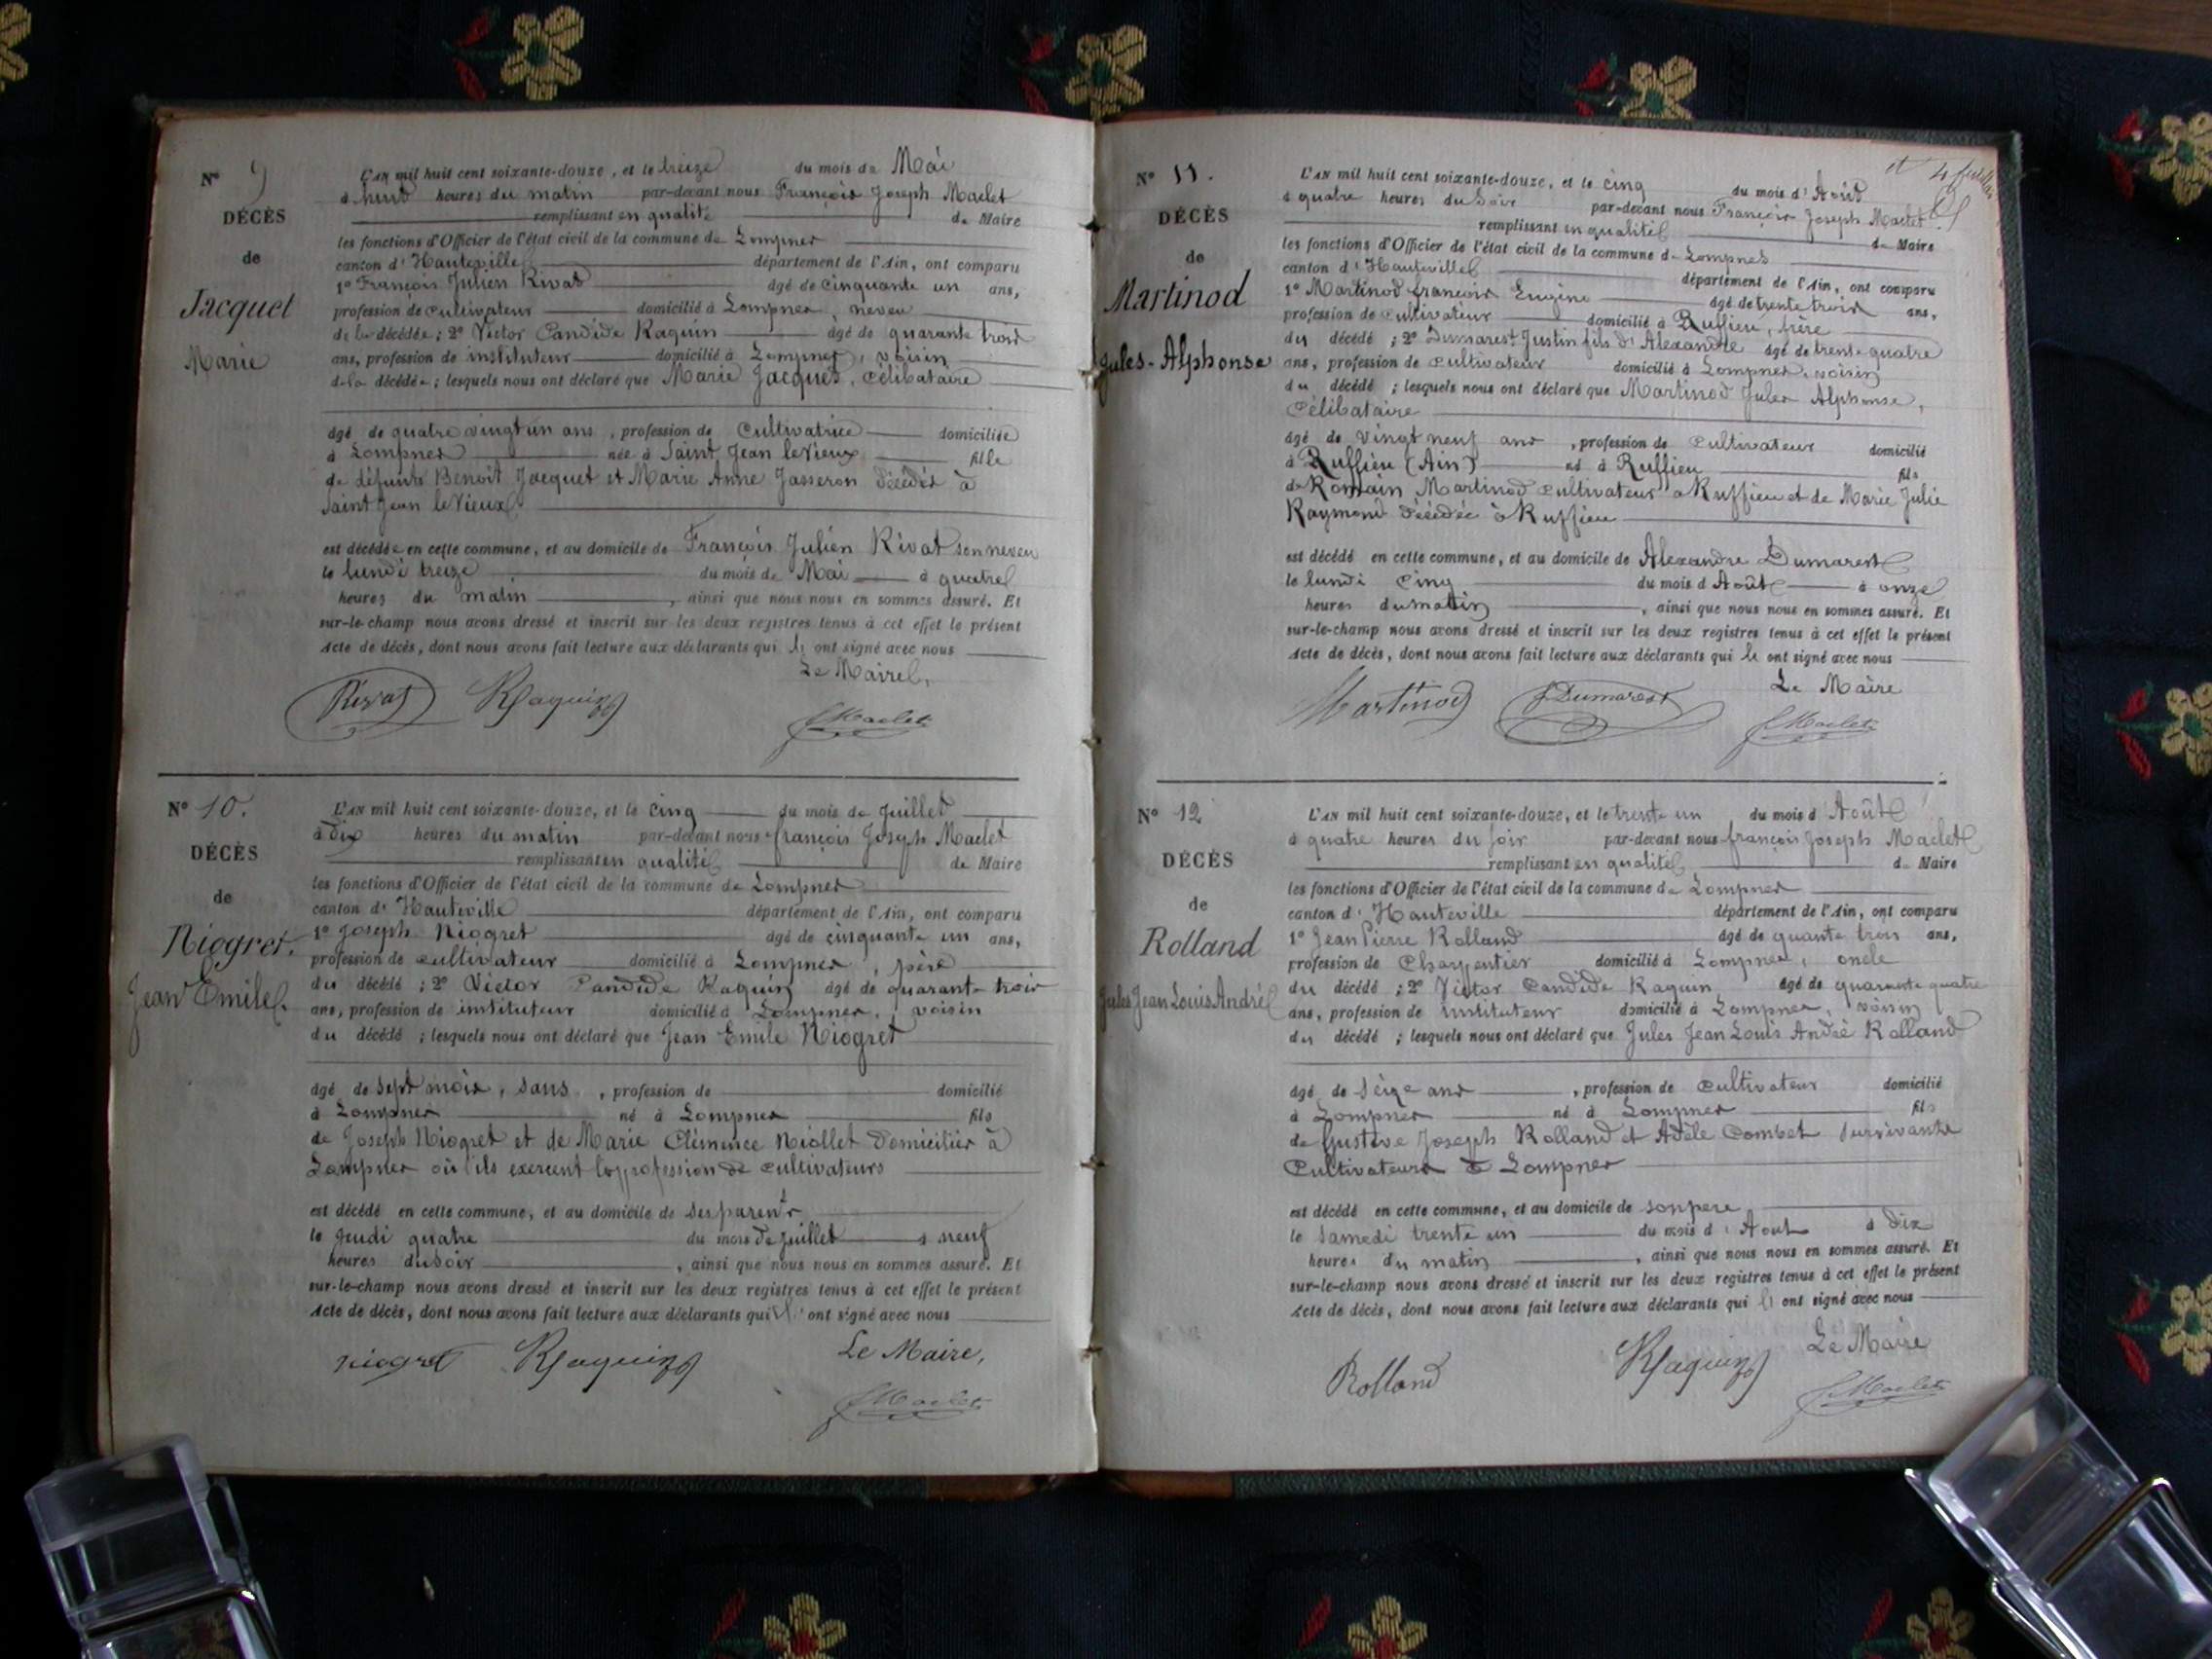 N° 9
DÉCÈS
de
Jacquet
Marie
L'AN mil huit cent soixante-douze, et le treize du mois de Mai
à huit heures du matin par-devant nous François Joseph Maclet
remplissant en qualité de Maire
les fonctions d'Officier de l'état civil de la commune de Lompnes
canton d'Hauteville département de l'Ain, ont comparu
1° François Julien Rivat âgé de cinquante un ans,
profession de cultivateur domicilié à Lompnes, neveu
de la décédée; 2° Victor Candide Raquin âgé de quarante trois
ans, profession de instituteur domicilié à Lompnes, voisin
de la décédée; lesquels nous ont déclaré que Marie Jacquet, Célibataire
âgé de quatre vingt un ans, profession de Cultivatrice domiciliée
à Lompnes née à Saint Jean le Vieux fille
de défunts Benoît Jacquet et Marie Anne Jasseron décédés à
Saint Jean le Vieux
est décédée en cette commune, et au domicile de François Julien Rivat son neveu
le lundi treize du mois de Mai à quatre
heures du matin, ainsi que nous nous en sommes assuré. Et
sur-le-champ nous avons dressé et inscrit sur les deux registres tenus à cet effet le présent
Acte de décès, dont nous avons fait lecture aux déclarants qui l' ont signé avec nous
Le Maire,
Rivat Raquin Maclet
N° 10.
DÉCÈS
de
Niogret.
Jean Emile.
L'AN mil huit cent soixante-douze, et le cinq du mois de Juillet
à dix heures du matin par-devant nous François Joseph Maclet
remplissant en qualité de Maire
les fonctions d'Officier de l'état civil de la commune de Lompnes
canton d'Hauteville département de l'Ain, ont comparu
1° Joseph Niogret âgé de cinquante un ans,
profession de cultivateur domicilié à Lompnes, père
du décédé; 2° Victor Candide Raquin âgé de quarante trois
ans, profession de instituteur domicilié à Lompnes, voisin
du décédé; lesquels nous ont déclaré que Jean Emile Niogret
âgé de sept mois, sans, profession de domicilié
à Lompnes né à Lompnes fils
de Joseph Niogret et de Marie Clémence Niollet domiciliés à
Lompnes où ils exercent la profession de cultivateurs
est décédé en cette commune, et au domicile de ses parents
le jeudi quatre du mois de Juillet à neuf
heures du soir, ainsi que nous nous en sommes assuré. Et
sur-le-champ nous avons dressé et inscrit sur les deux registres tenus à cet effet le présent
Acte de décès, dont nous avons fait lecture aux déclarants qui l' ont signé avec nous
Niogret Raquin Le Maire,
Maclet
et 4 feuillets
N° 11.
DÉCÈS
de
Martinod
Jules-Alphonse
L'AN mil huit cent soixante-douze, et le cinq du mois d'Août
à quatre heures du Soir par-devant nous François Joseph Maclet
remplissant en qualité de Maire
les fonctions d'Officier de l'état civil de la commune de Lompnes
canton d'Hauteville département de l'Ain, ont comparu
1° Martinod François Eugène âgé de trente trois ans,
profession de cultivateur domicilié à Ruffieu, frère
du décédé; 2° Dumarest Justin fils d'Alexandre âgé de trente quatre
ans, profession de cultivateur domicilié à Lompnes, voisin
du décédé; lesquels nous ont déclaré que Martinod Jules Alphonse,
Célibataire
âgé de vingt neuf ans, profession de cultivateur domicilié
à Ruffieu (Ain) né à Ruffieu fils
de Romain Martinod cultivateur à Ruffieu et de Marie Julie
Raymond décédée à Ruffieu
est décédé en cette commune, et au domicile de Alexandre Dumarest
le lundi cinq du mois d'Août à onze
heures du matin, ainsi que nous nous en sommes assuré. Et
sur-le-champ nous avons dressé et inscrit sur les deux registres tenus à cet effet le présent
Acte de décès, dont nous avons fait lecture aux déclarants qui l' ont signé avec nous
Le Maire
Martinod Dumarest Maclet
N° 12
DÉCÈS
de
Rolland
Jules Jean Louis André
L'AN mil huit cent soixante-douze, et le trente un du mois d'Août
à quatre heures du soir par-devant nous françois Joseph Maclet
remplissant en qualité de Maire
les fonctions d'Officier de l'état civil de la commune de Lompnes
canton d'Hauteville département de l'Ain, ont comparu
1° Jean Pierre Rolland âgé de quante trois ans,
profession de Charpentier domicilié à Lompnes, oncle
du décédé; 2° Victor Candide Raquin âgé de quarante quatre
ans, profession de instituteur domicilié à Lompnes, voisin
du décédé; lesquels nous ont déclaré que Jules Jean Louis André Rolland
âgé de seize ans, profession de cultivateur domicilié
à Lompnes né à Lompnes fils
de Gustave Joseph Rolland et Adèle Combet survivants
Cultivateurs à Lompnes
est décédé en cette commune, et au domicile de son père
le samedi trente un du mois d'Aout à dix
heures du matin, ainsi que nous nous en sommes assuré. Et
sur-le-champ nous avons dressé et inscrit sur les deux registres tenus à cet effet le présent
Acte de décès, dont nous avons fait lecture aux déclarants qui l' ont signé avec nous
Le Maire
Rolland Raquin Maclet